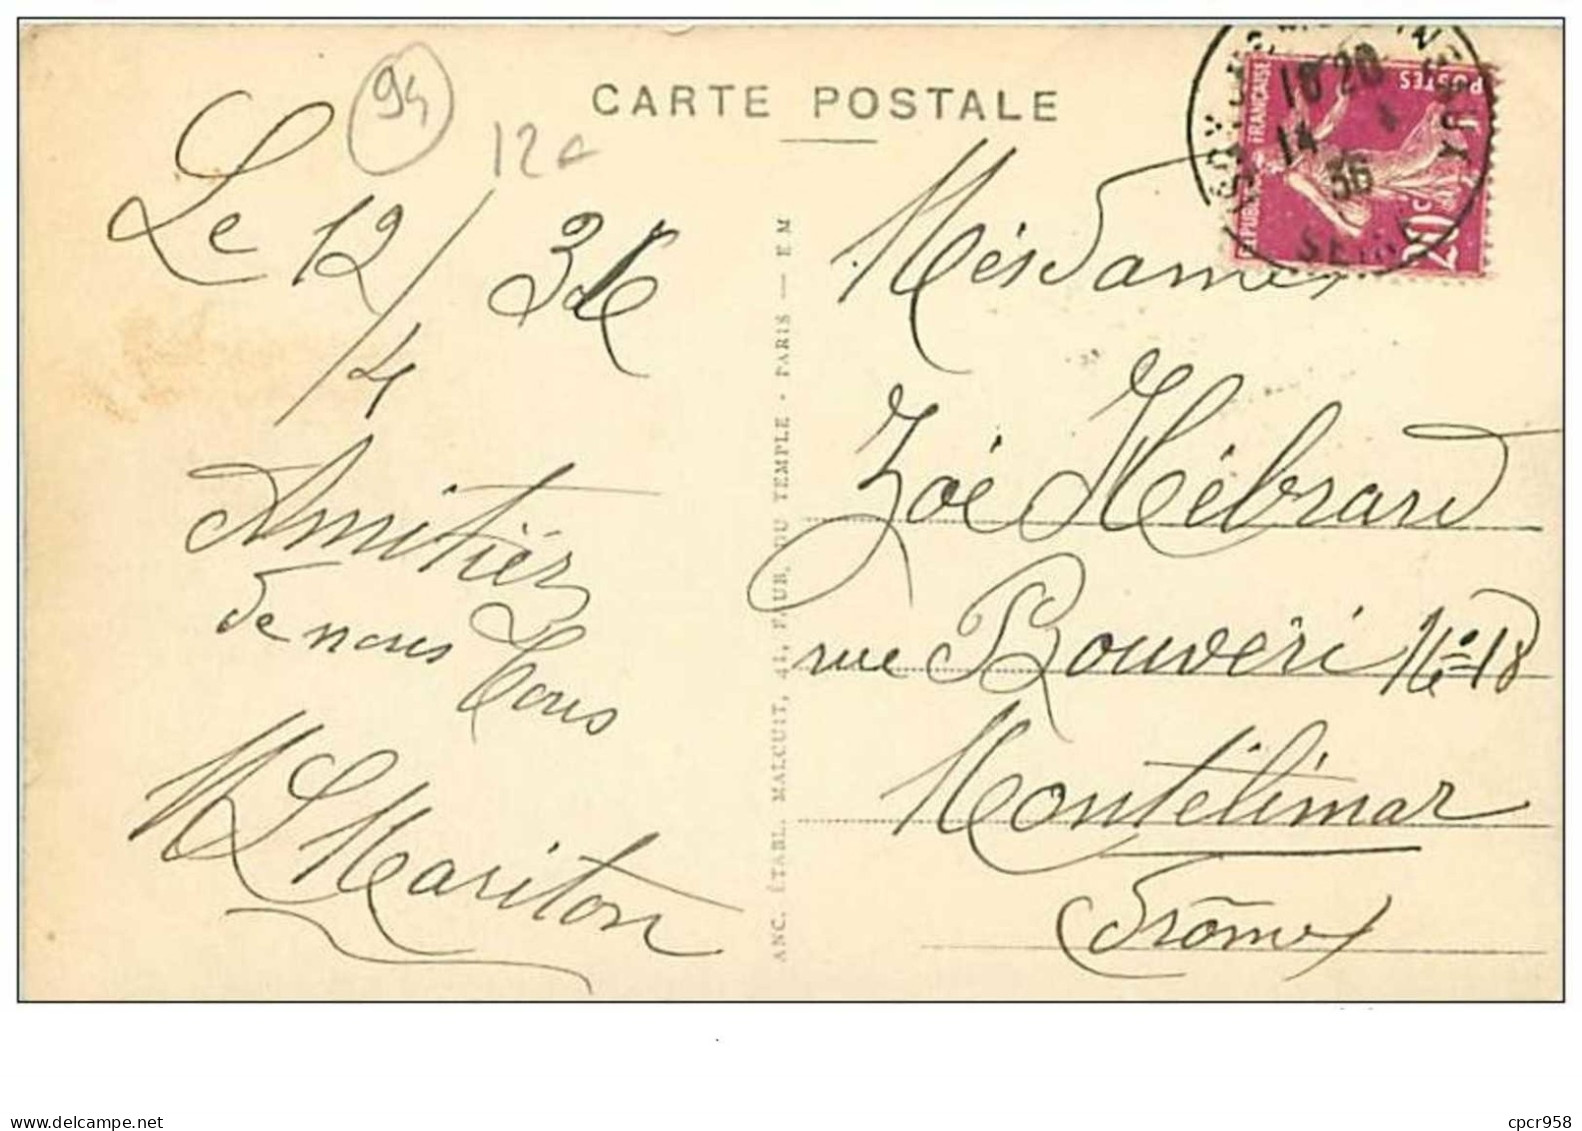 94
12c
CARTE POSTALE
Le 12/4 36
Amitiés
de nous tous
Mariton
ANC. ÉTABL. MALCUIT, 41, FAUB. DU TEMPLE - PARIS — E M
RÉPUBLIQUE FRANÇAISE
POSTES
20 C
18 20
14 4
36
SEINE
Mesdames
Zoé Hébrard
rue Bouveri No 18
Montélimar
Drôme
cpcr958